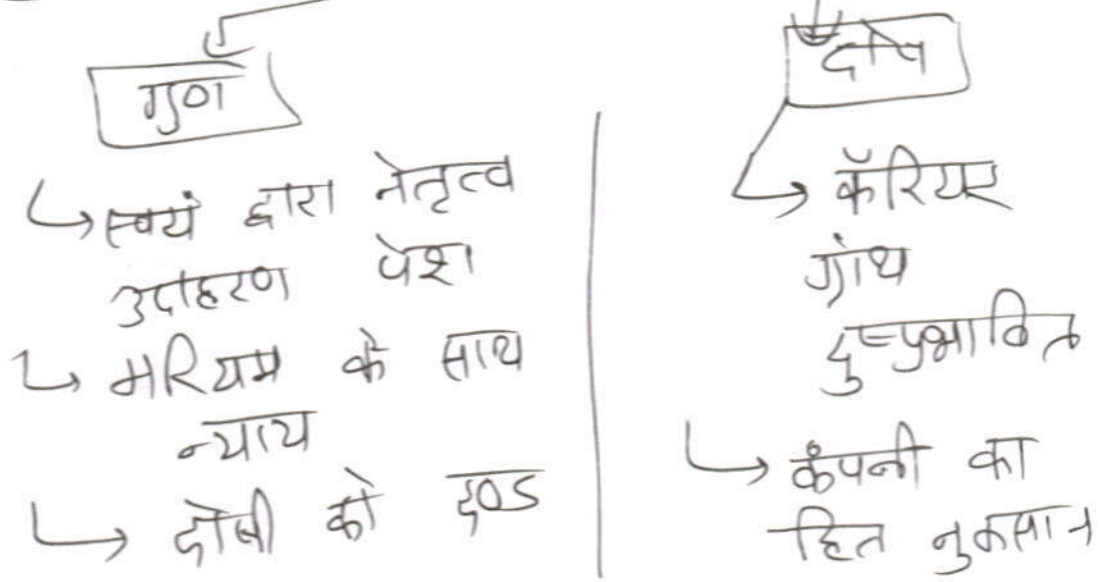 गुण
↳ स्वयं द्वारा नेतृत्व
उदाहरण पेश
↳ मरियम के साथ
न्याय
↳ दोषी को दण्ड
दोष
↳ कॅरियर
ग्रोथ
दुष्प्रभावित
↳ कंपनी का
हित नुकसान